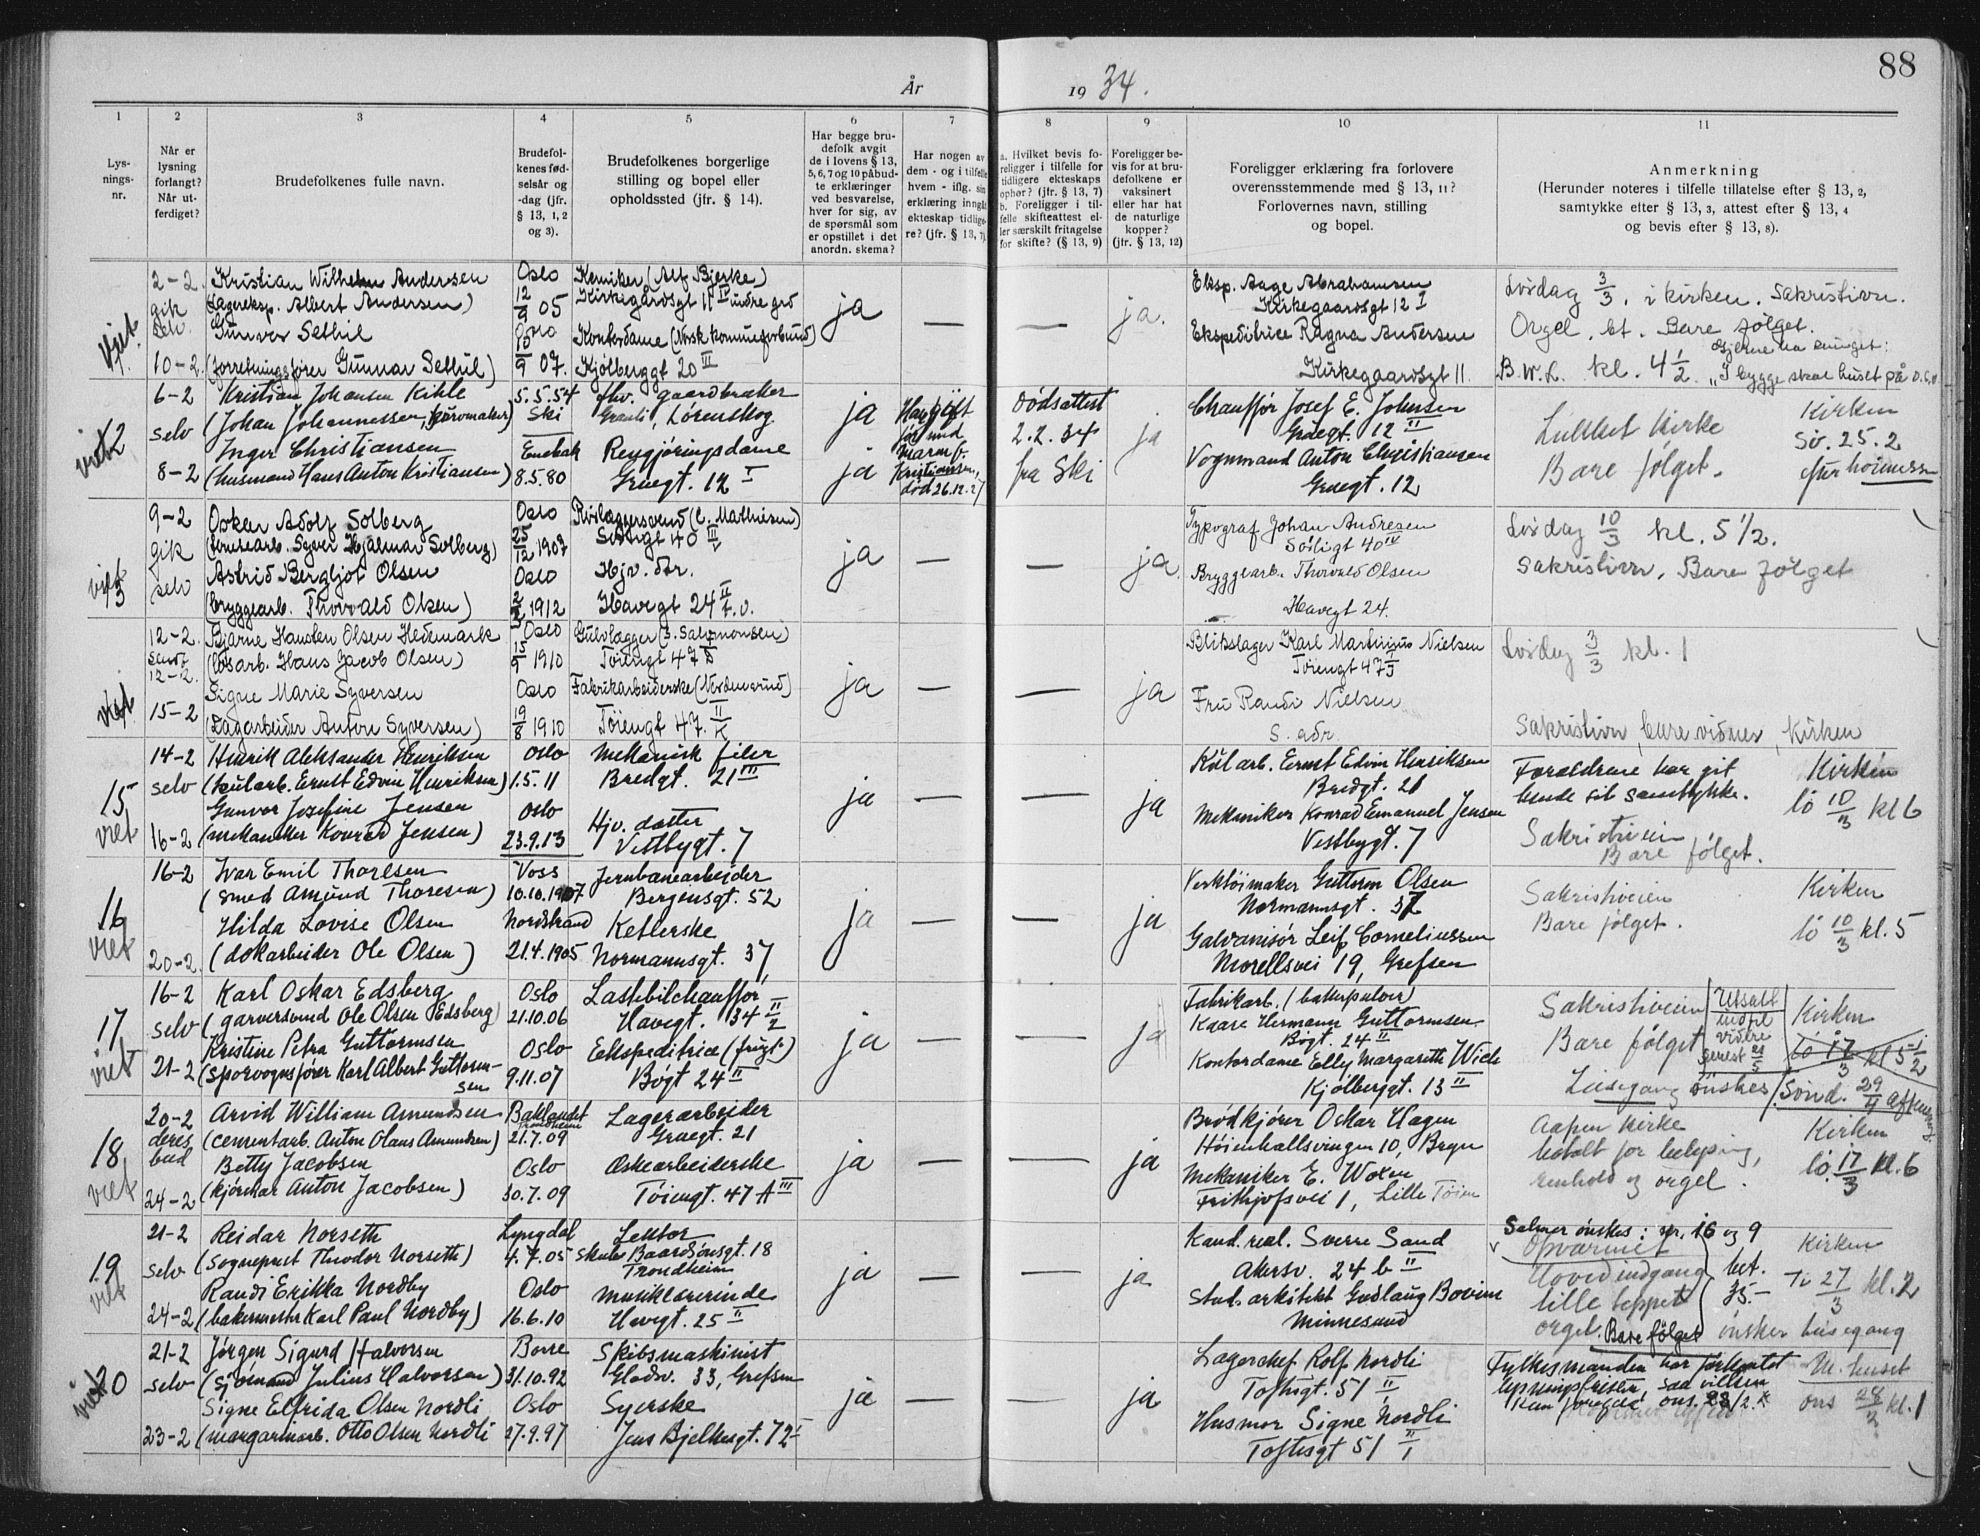 88
År
19 34.
1
2
3
4
5
6
7
8
9
10
11
Lys-
nings-
nr.
Når er
lysning
forlangt?
Når ut-
ferdiget?
Brudefolkenes fulle navn.
Brudefol-
kenes fød-
selsår og
-dag (jfr.
§ 13, 1, 2
og 3).
Brudefolkenes borgerlige
stilling og bopel eller
opholdssted (jfr. § 14).
Har begge bru-
defolk avgit
de i lovens § 13,
5, 6, 7 og 10 påbud-
te erklæringer
ved besvarelse,
hver for sig, av
de spørsmål som
er opstillet i det
anordn. skema?
Har nogen av
dem - og i tilfelle
hvem - iflg. sin
erklæring inngåt
ekteskap tidlige-
re? (jfr. § 13, 7)
a. Hvilket bevis fo-
religger i tilfelle for
tidligere ekteskaps
ophør? (jfr. § 13, 7)
b. Foreligger i til-
felle skifteattest el-
ler særskilt fritagelse
for skifte? (§ 13, 9)
Foreligger be-
vis for at bru-
defolkene er
vaksinert
eller har hat
de naturlige
kopper?
(jfr. § 13, 12)
Foreligger erklæring fra forlovere
overensstemmende med § 13, 11?
Forlovernes navn, stilling
og bopel.
Anmerkning
(Herunder noteres i tilfelle tillatelse efter § 13, 2,
samtykke efter § 13, 3, attest efter § 13, 4
og bevis efter § 13, 8).
2-2 Kristian Wilhelm Andersen Oslo Kemiker (Alf Bjerke) Eksp. Aage Abrahamsen Lördag 3/3. i kirken. Sakristien.
gik (Lagereksp. Albert Andersen) 12/9 05 Kirkegaardsgt 11 IV indre grd ja — — ja. Kirkegaardsgt 12 I
selv Gunvor Sethil Oslo Kontordame (Norsk kommuneforbund) Ekspeditrice Ragna Andersen Orgel. bt. Bare følget.
10-2 (forretningsfører Gunnar Sethil) 10/9 07. Kjölberggt 20 III Kirkegaardsgt 11. B.W.L. kl. 4 1/2. "I bygge skal huset på
6-2 Kristian Johansen Kihle 5.5.54 fhv. gaardbruker Har gift dødsattest Chauffør Josef E. Johnsen Kirken
viet 2 selv (Johan Johannessen, Ski Lørenskog ja før med 2.2.34 ja Gruegt. 12 II Lukket Kirke Sø. 25.2
Inger Christiansen Enebak Rengjøringsdame Vognmand Anton Christiansen Bare følget.
8-2 (husmand Hans Anton Kristiansen) 8.5.80 Gruegt. 12 I ja Kristiansen, død 26.12.27 fra Ski Gruegt. 12
9-2 Oskar Adolf Solberg Oslo Rörlæggersvend (C. Mathiesen) Typograf Johan Andresen Lördag 10/3 kl. 5 1/2.
gik Syver Hjalmar Solberg) 25/12 1907 Sörligt 40 Sörligt 40 IV
viet 3 selv Astrid Bergljot Olsen Oslo Hjv. dtr. ja — — ja Bryggearb. Thorvald Olsen Sakristien. Bare følget
(bryggearb. Thorvald Olsen) 1912 Havegt 24 II t.v. Havegt 24.
12-2. Bjarne Hansten Olsen Hedemark Oslo Gulvlægger (S. Salomonsen) Blikslager Karl Martinius Nielsen Lördag 3/3 kl. 1
sendt (løsarb. Hans Jacob Olsen) 15/9 1910 Töiengt 47 Töiengt 47
12-2. Signe Marie Syversen Oslo Fabrikarbeiderske ja — — ja Fru Randi Nielsen
viet 15-2 (Lagarbeider Anton Syversen) 19/8 1910 Töiengt 47. S. adr. Sakristien, bare vidner, Kirken
14-2 Henrik Aleksander Henriksen Oslo Mekanisk filer Kularb. Ernst Edvin Henriksen Forældrene har git Kirken
15 selv (kularb. Ernst Edvin Henriksen) 1.5.11 Bredgt. 21 III Bredgt. 21 sit samtykke. lö 10/3 kl 6
viet Gunvor Josefine Jensen Oslo Hjv. datter ja — — ja Mekaniker Konrad Emanuel Jensen Sakristien
16-2 (mekaniker Konrad Jensen) 23.9.13 Vestbygt. 7 Vestbygt. 7 Bare følget.
16-2 Ivar Emil Thoresen Voss Jernbanearbeider Verktöimaker Guttorm Olsen Kirken
16 (smed Amund Thoresen) 10.10.1907 Bergensgt. 52 Normannsgt. 37 Sakristieien
viet Hilda Lovise Olsen Nordstrand Ketlerske ja — — ja Galvanisör Leif Corneliussen Bare følget. lö 10/3 kl. 5
20-2. (dokarbeider Ole Olsen) 21.4.1905 Normannsgt. 37 Morellsvei 19, Grefsen
16-2 Karl Oskar Edsberg Oslo Lastebilchauffør Fabrikarb. (bakerpulver) Sakristieien Utsatt Kirken
17 selv (garversvend Ole Olsen Edsberg) 21.10.06 Havegt. 34 II/2 Kaare Hermann Guttormsen indtil
viet Kristine Petra Guttormsen Oslo Ekspeditrice (frugt) ja — — ja Bögt. 24 II Bare følget videre lö 17/3 kl 5 1/2
21-2 (sporvognsfører Karl Albert Guttorm- 9.11.07 Bögt 24 II Kontordame Elly Margareth Wiele senest
sen Kjølberggt. 13 II ønskes Sönd. 29/4
20-2 Arvid William Amundsen Baklandet Lagerarbeider Brödkjører Oskar Hagen Aapen Kirke Kirken
18 deres (cementarb. Anton Olaus Amundsen) Trondheim 21.7.09 Gruegt. 21 Höienhallsvingen 10, Bryn betalt for belysning,
viet bud Betty Jacobsen Oslo Æskearbeiderske ja — — ja Mekaniker E. Woxen renhold og orgel. lö. 17/3 kl. 6
24-2 (kjörekar Anton Jacobsen) 30.7.09 Töiengt. 47 A III Frithjofsvei 1, Lille Töien
21-2 Reidar Norseth Lyngdal Lektor Kand. real. Sverre Sand Salmer ønskes: nr. 16 og 9
19 selv (sogneprest Theodor Norseth) 4.7.05 Baardsönsgt. 18 Akersv. 24 b II Opvarmet Kirken
Trondheim
viet Randi Erikka Nordby Oslo Musiklærerinde ja — — ja Stud. arkitekt Gudlaug Bovim Hovedindgang bet. Ti 27/3 kl. 2
24-2 (bakermester Karl Paul Nordby) 16.6.10 Havegt. 25 II Minnesund lille teppet 35.-
orgel. Bare følget ønsker
21-2 Jörgen Sigurd Halvorsen Borre Skibsmaskinist Lagerchef Rolf Nordli Fylkesmanden har forkortet M. huset
viet 20 selv (sjömand Julius Halvorsen) 31.10.92 Gladsv. 33, Grefsen Toftesgt. 51 II lysningsfristen, saa vielsen
Signe Elfrida Olsen Nordli Oslo Syerske ja — — ja Husmor Signe Nordli kan foregaa ons. 28/2. ons 28/2 kl. 1
23-2 (margarinarb. Otto Olsen Nordli 27.9.97 Jens Bjelkesgt. 72 I Toftesgt 51 II